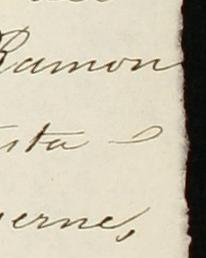 Ramon
sta -
erne,